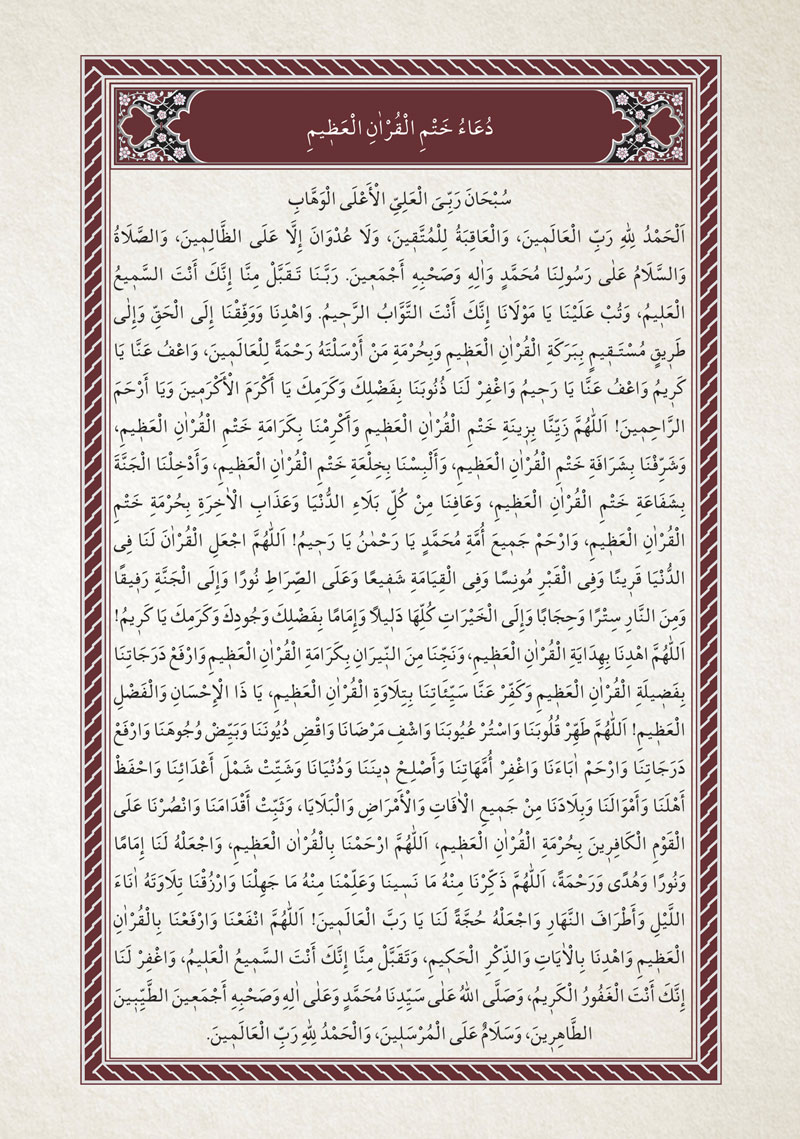 دُعَاءُ خَتْمِ الْقُرْاٰنِ الْعَظٖيمِ
سُبْحَانَ رَبِّىَ الْعَلِىِّ الْأَعْلَى الْوَهَّابِ
اَلْحَمْدُ لِلّٰهِ رَبِّ الْعَالَمٖينَ، وَالْعَاقِبَةُ لِلْمُتَّقٖينَ، وَلَا عُدْوَانَ إِلَّا عَلَى الظَّالِمٖينَ، وَالصَّلَاةُ
وَالسَّلَامُ عَلٰى رَسُولِنَا مُحَمَّدٍ وَاٰلِهٖ وَصَحْبِهٖ أَجْمَعٖينَ. رَبَّنَا تَقَبَّلْ مِنَّا إِنَّكَ أَنْتَ السَّمٖيعُ
الْعَلٖيمُ، وَتُبْ عَلَيْنَا يَا مَوْلَانَا إِنَّكَ أَنْتَ التَّوَّابُ الرَّحٖيمُ. وَاهْدِنَا وَوَفِّقْنَا إِلَى الْحَقِّ وَإِلٰى
طَرٖيقٍ مُسْتَقٖيمٍ بِبَرَكَةِ الْقُرْاٰنِ الْعَظٖيمِ وَبِحُرْمَةِ مَنْ أَرْسَلْتَهُ رَحْمَةً لِلْعَالَمٖينَ، وَاعْفُ عَنَّا يَا
كَرٖيمُ وَاعْفُ عَنَّا يَا رَحٖيمُ وَاغْفِرْ لَنَا ذُنُوبَنَا بِفَضْلِكَ وَكَرَمِكَ يَا أَكْرَمَ الْأَكْرَمٖينَ وَيَا أَرْحَمَ
الرَّاحِمٖينَ! اَللّٰهُمَّ زَيِّنَّا بِزٖينَةِ خَتْمِ الْقُرْاٰنِ الْعَظٖيمِ وَأَكْرِمْنَا بِكَرَامَةِ خَتْمِ الْقُرْاٰنِ الْعَظٖيمِ،
وَشَرِّفْنَا بِشَرَافَةِ خَتْمِ الْقُرْاٰنِ الْعَظٖيمِ، وَأَلْبِسْنَا بِخِلْعَةِ خَتْمِ الْقُرْاٰنِ الْعَظٖيمِ، وَأَدْخِلْنَا الْجَنَّةَ
بِشَفَاعَةِ خَتْمِ الْقُرْاٰنِ الْعَظٖيمِ، وَعَافِنَا مِنْ كُلِّ بَلَاءِ الدُّنْيَا وَعَذَابِ الْاٰخِرَةِ بِحُرْمَةِ خَتْمِ
الْقُرْاٰنِ الْعَظٖيمِ، وَارْحَمْ جَمٖيعَ أُمَّةِ مُحَمَّدٍ يَا رَحْمٰنُ يَا رَحٖيمُ! اَللّٰهُمَّ اجْعَلِ الْقُرْاٰنَ لَنَا فِى
الدُّنْيَا قَرٖينًا وَفِى الْقَبْرِ مُونِسًا وَفِى الْقِيَامَةِ شَفٖيعًا وَعَلَى الصِّرَاطِ نُورًا وَإِلَى الْجَنَّةِ رَفٖيقًا
وَمِنَ النَّارِ سِتْرًا وَحِجَابًا وَإِلَى الْخَيْرَاتِ كُلِّهَا دَلٖيلاً وَإِمَامًا بِفَضْلِكَ وَجُودِكَ وَكَرَمِكَ يَا كَرٖيمُ!
اَللّٰهُمَّ اهْدِنَا بِهِدَايَةِ الْقُرْاٰنِ الْعَظٖيمِ، وَنَجِّنَا مِنَ النّٖيرَانِ بِكَرَامَةِ الْقُرْاٰنِ الْعَظٖيمِ وَارْفَعْ دَرَجَاتِنَا
بِفَضٖيلَةِ الْقُرْاٰنِ الْعَظٖيمِ وَكَفِّرْ عَنَّا سَيِّئَاتِنَا بِتِلَاوَةِ الْقُرْاٰنِ الْعَظٖيمِ، يَا ذَا الْإِحْسَانِ وَالْفَضْلِ
الْعَظٖيمِ! اَللّٰهُمَّ طَهِّرْ قُلُوبَنَا وَاسْتُرْ عُيُوبَنَا وَاشْفِ مَرْضَانَا وَاقْضِ دُيُونَنَا وَبَيِّضْ وُجُوهَنَا وَارْفَعْ
دَرَجَاتِنَا وَارْحَمْ اٰبَاءَنَا وَاغْفِرْ أُمَّهَاتِنَا وَأَصْلِحْ دٖينَنَا وَدُنْيَانَا وَشَتِّتْ شَمْلَ أَعْدَائِنَا وَاحْفَظْ
أَهْلَنَا وَأَمْوَالَنَا وَبِلَادَنَا مِنْ جَمٖيعِ الْاٰفَاتِ وَالْأَمْرَاضِ وَالْبَلَايَا، وَثَبِّتْ أَقْدَامَنَا وَانْصُرْنَا عَلَى
الْقَوْمِ الْكَافِرٖينَ بِحُرْمَةِ الْقُرْاٰنِ الْعَظٖيمِ، اَللّٰهُمَّ ارْحَمْنَا بِالْقُرْاٰنِ الْعَظٖيمِ، وَاجْعَلْهُ لَنَا إِمَامًا
وَنُورًا وَهُدًى وَرَحْمَةً، اَللّٰهُمَّ ذَكِّرْنَا مِنْهُ مَا نَسٖينَا وَعَلِّمْنَا مِنْهُ مَا جَهِلْنَا وَارْزُقْنَا تِلَاوَتَهُ اٰنَاءَ
اللَّيْلِ وَأَطْرَافَ النَّهَارِ وَاجْعَلْهُ حُجَّةً لَنَا يَا رَبَّ الْعَالَمٖينَ! اَللّٰهُمَّ انْفَعْنَا وَارْفَعْنَا بِالْقُرْاٰنِ
الْعَظٖيمِ وَاهْدِنَا بِالْاٰيَاتِ وَالذِّكْرِ الْحَكٖيمِ، وَتَقَبَّلْ مِنَّا إِنَّكَ أَنْتَ السَّمٖيعُ الْعَلٖيمُ، وَاغْفِرْ لَنَا
إِنَّكَ أَنْتَ الْغَفُورُ الْكَرٖيمُ، وَصَلَّى اللّٰهُ عَلٰى سَيِّدِنَا مُحَمَّدٍ وَعَلٰى اٰلِهٖ وَصَحْبِهٖ أَجْمَعٖينَ الطَّيِّبٖينَ
الطَّاهِرٖينَ، وَسَلَامٌ عَلَى الْمُرْسَلٖينَ، وَالْحَمْدُ لِلّٰهِ رَبِّ الْعَالَمٖينَ.